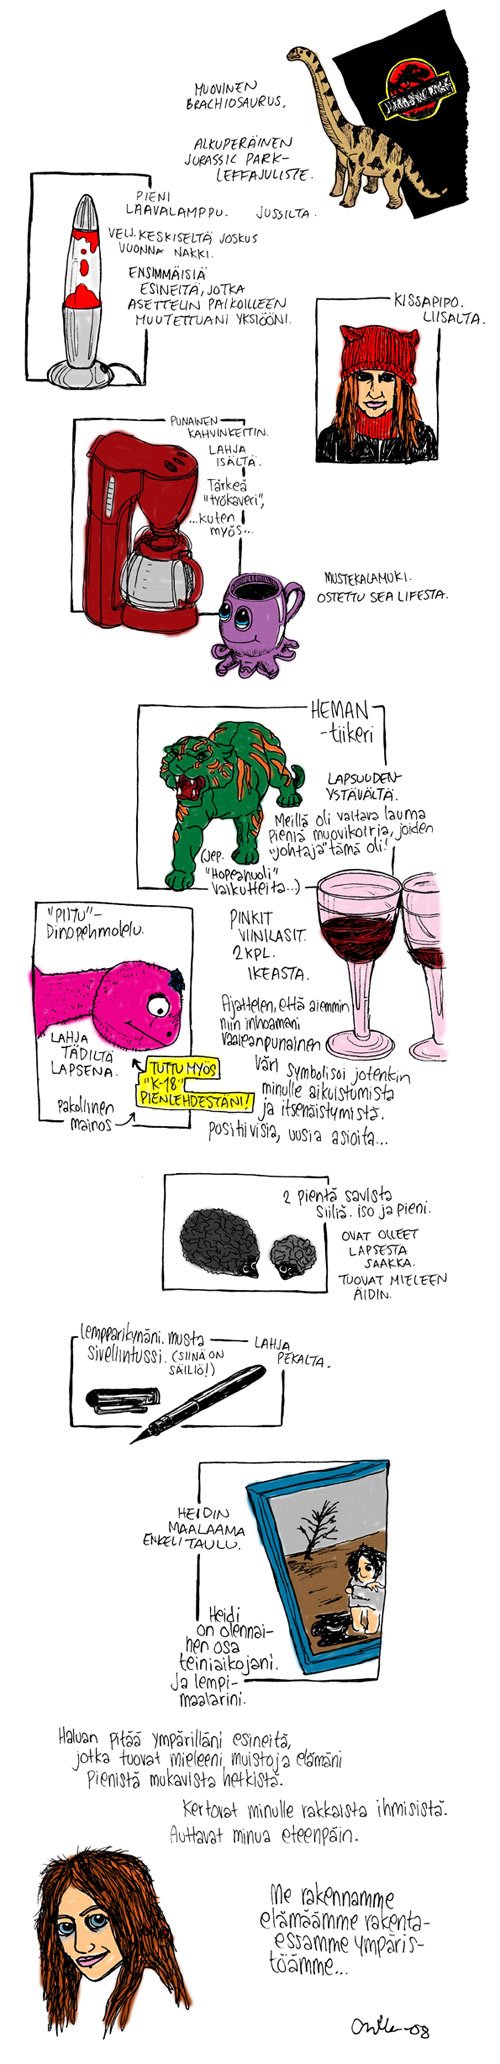 MUOVINEN
BRACHIOSAURUS.
ALKUPERÄINEN
JURASSIC PARK-
LEFFAJULISTE.
JUSSILTA.
JURASSIC PARK
PIENI
LAAVALAMPPU.
VELJ. KESKISELTÄ JOSKUS
VUONNA NAKKI.
ENSIMMÄISIÄ
ESINEITÄ, JOTKA
ASETTELIN PAIKOILLEEN
MUUTETTUANI YKSIÖÖNI.
KISSAPIPO.
LIISALTA.
PUNAINEN
KAHVINKEITIN.
LAHJA
ISÄLTÄ.
Tärkeä
"työkaveri",
...kuten
myös...
MUSTEKALAMUKI.
OSTETTU SEA LIFESTA.
HEMAN
-tiikeri
LAPSUUDEN-
YSTÄVÄLTÄ.
Meillä oli valtava lauma
pieniä muovikoiria, joiden
"johtaja" tämä oli!
(Jep.
"Hopeanuoli"
vaikutteita...)
"PIITU"-
Dinopehmolelu.
LAHJA
TÄDILTÄ
LAPSENA.
TUTTU MYÖS
"K-18"
PIENLEHDESTÄNI!
pakollinen
mainos
PINKIT
VIINILASIT.
2 KPL.
IKEASTA.
Ajattelen, että aiemmin
niin inhoamani
vaaleanpunainen
väri symbolisoi jotenkin
minulle aikuistumista
ja itsenäistymistä.
positiivisia, uusia asioita...
2 pientä savista
siiliä. iso ja pieni.
OVAT OLLEET
LAPSESTA
SAAKKA.
TUOVAT MIELEEN
ÄIDIN.
lempparikynäni. musta
sivellintussi. (SIINÄ ON
SÄILIÖ!)
LAHJA
PEKALTA.
HEIDIN
MAALAAMA
ENKELITAULU.
Heidi
on olennai-
nen osa
teiniaikojani.
Ja lempi-
maalarini.
Haluan pitää ympärilläni esineitä,
jotka tuovat mieleeni muistoja elämäni
pienistä mukavista hetkistä.
Kertovat minulle rakkaista ihmisistä.
Auttavat minua eteenpäin.
Me rakennamme
elämäämme rakenta-
essamme ympäris-
töämme...
-08